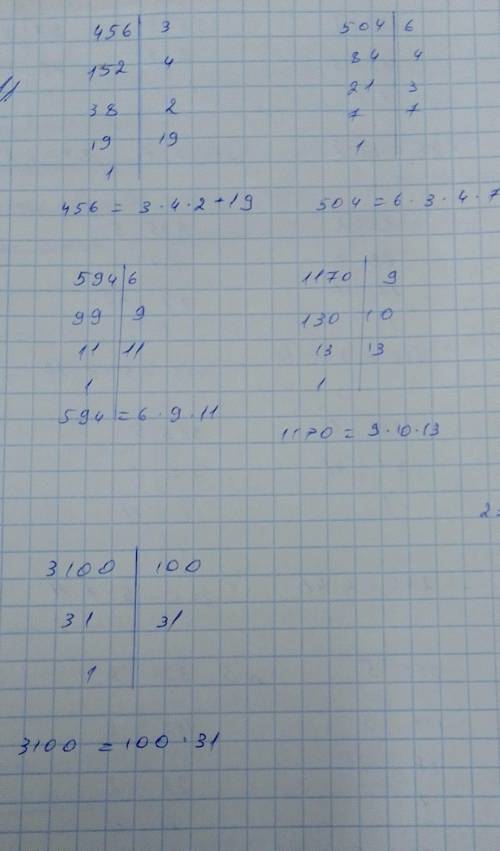 456 | 3
152 | 4
38 | 2
19 | 19
1
456 = 3 · 4 · 2 · 19
504 | 6
84 | 4
21 | 3
7 | 7
1
504 = 6 · 3 · 4 · 7
594 | 6
99 | 9
11 | 11
1
594 = 6 · 9 · 11
1170 | 9
130 | 10
13 | 13
1
1170 = 9 · 10 · 13
2
3100 | 100
31 | 31
1
3100 = 100 · 31